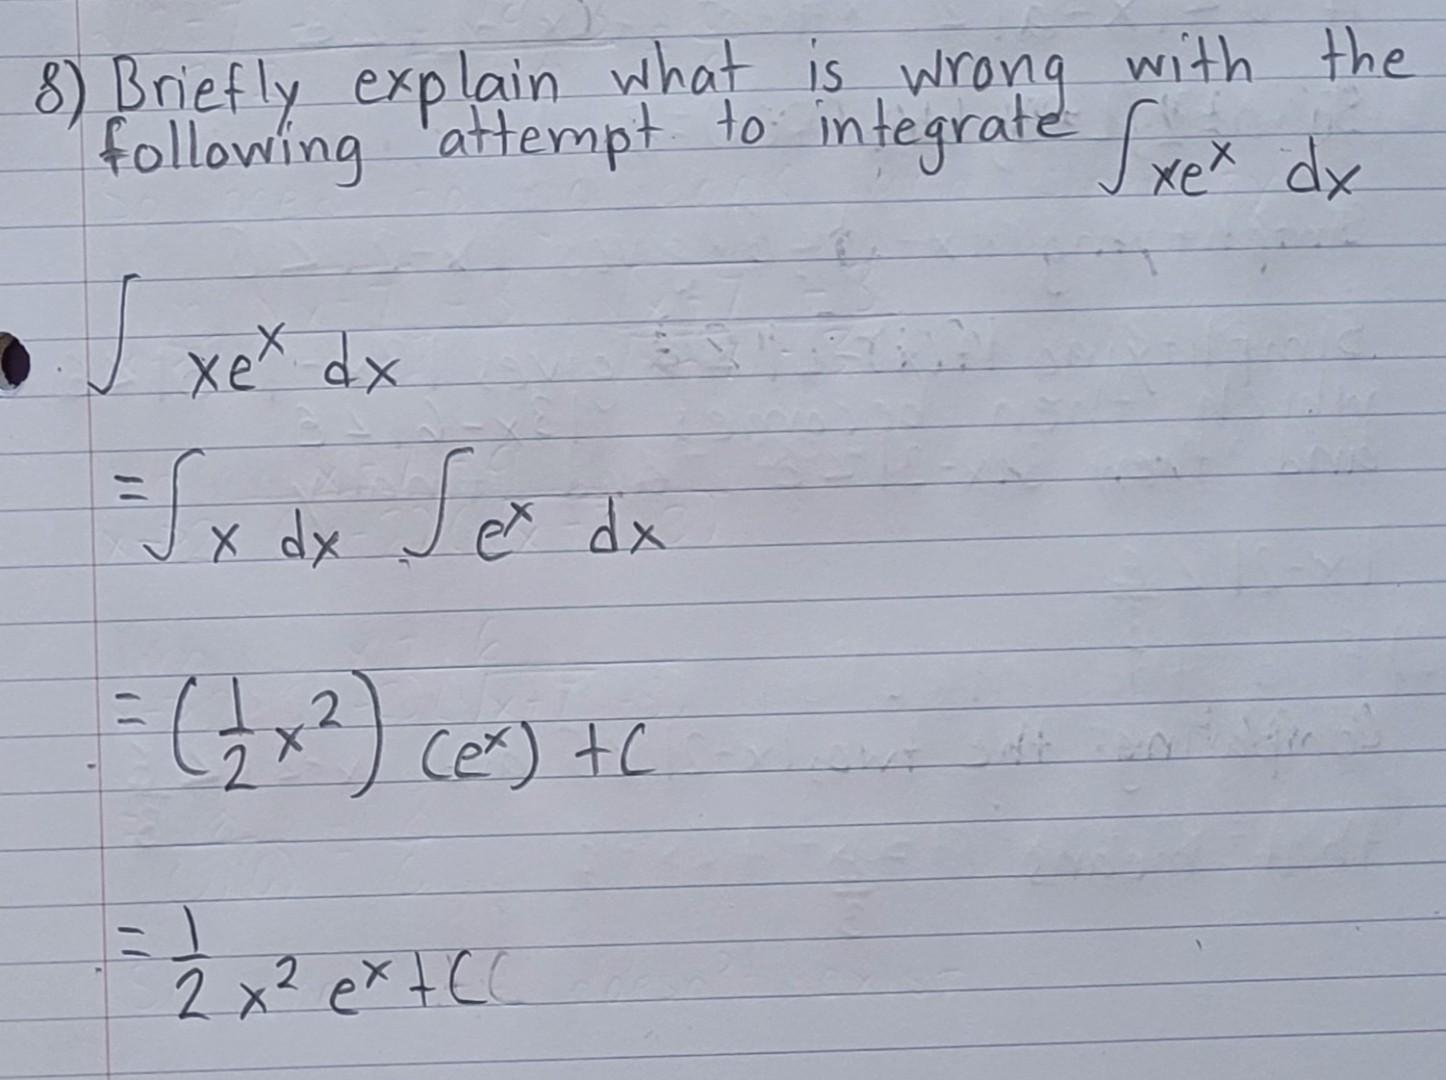 8) Briefly explain what is wrong with the
following attempt to integrate ∫xeˣ dx
∫ xeˣ dx
=∫x dx . ∫eˣ dx
= (1/2 x²) (eˣ) +C
= 1/2 x² eˣ +C